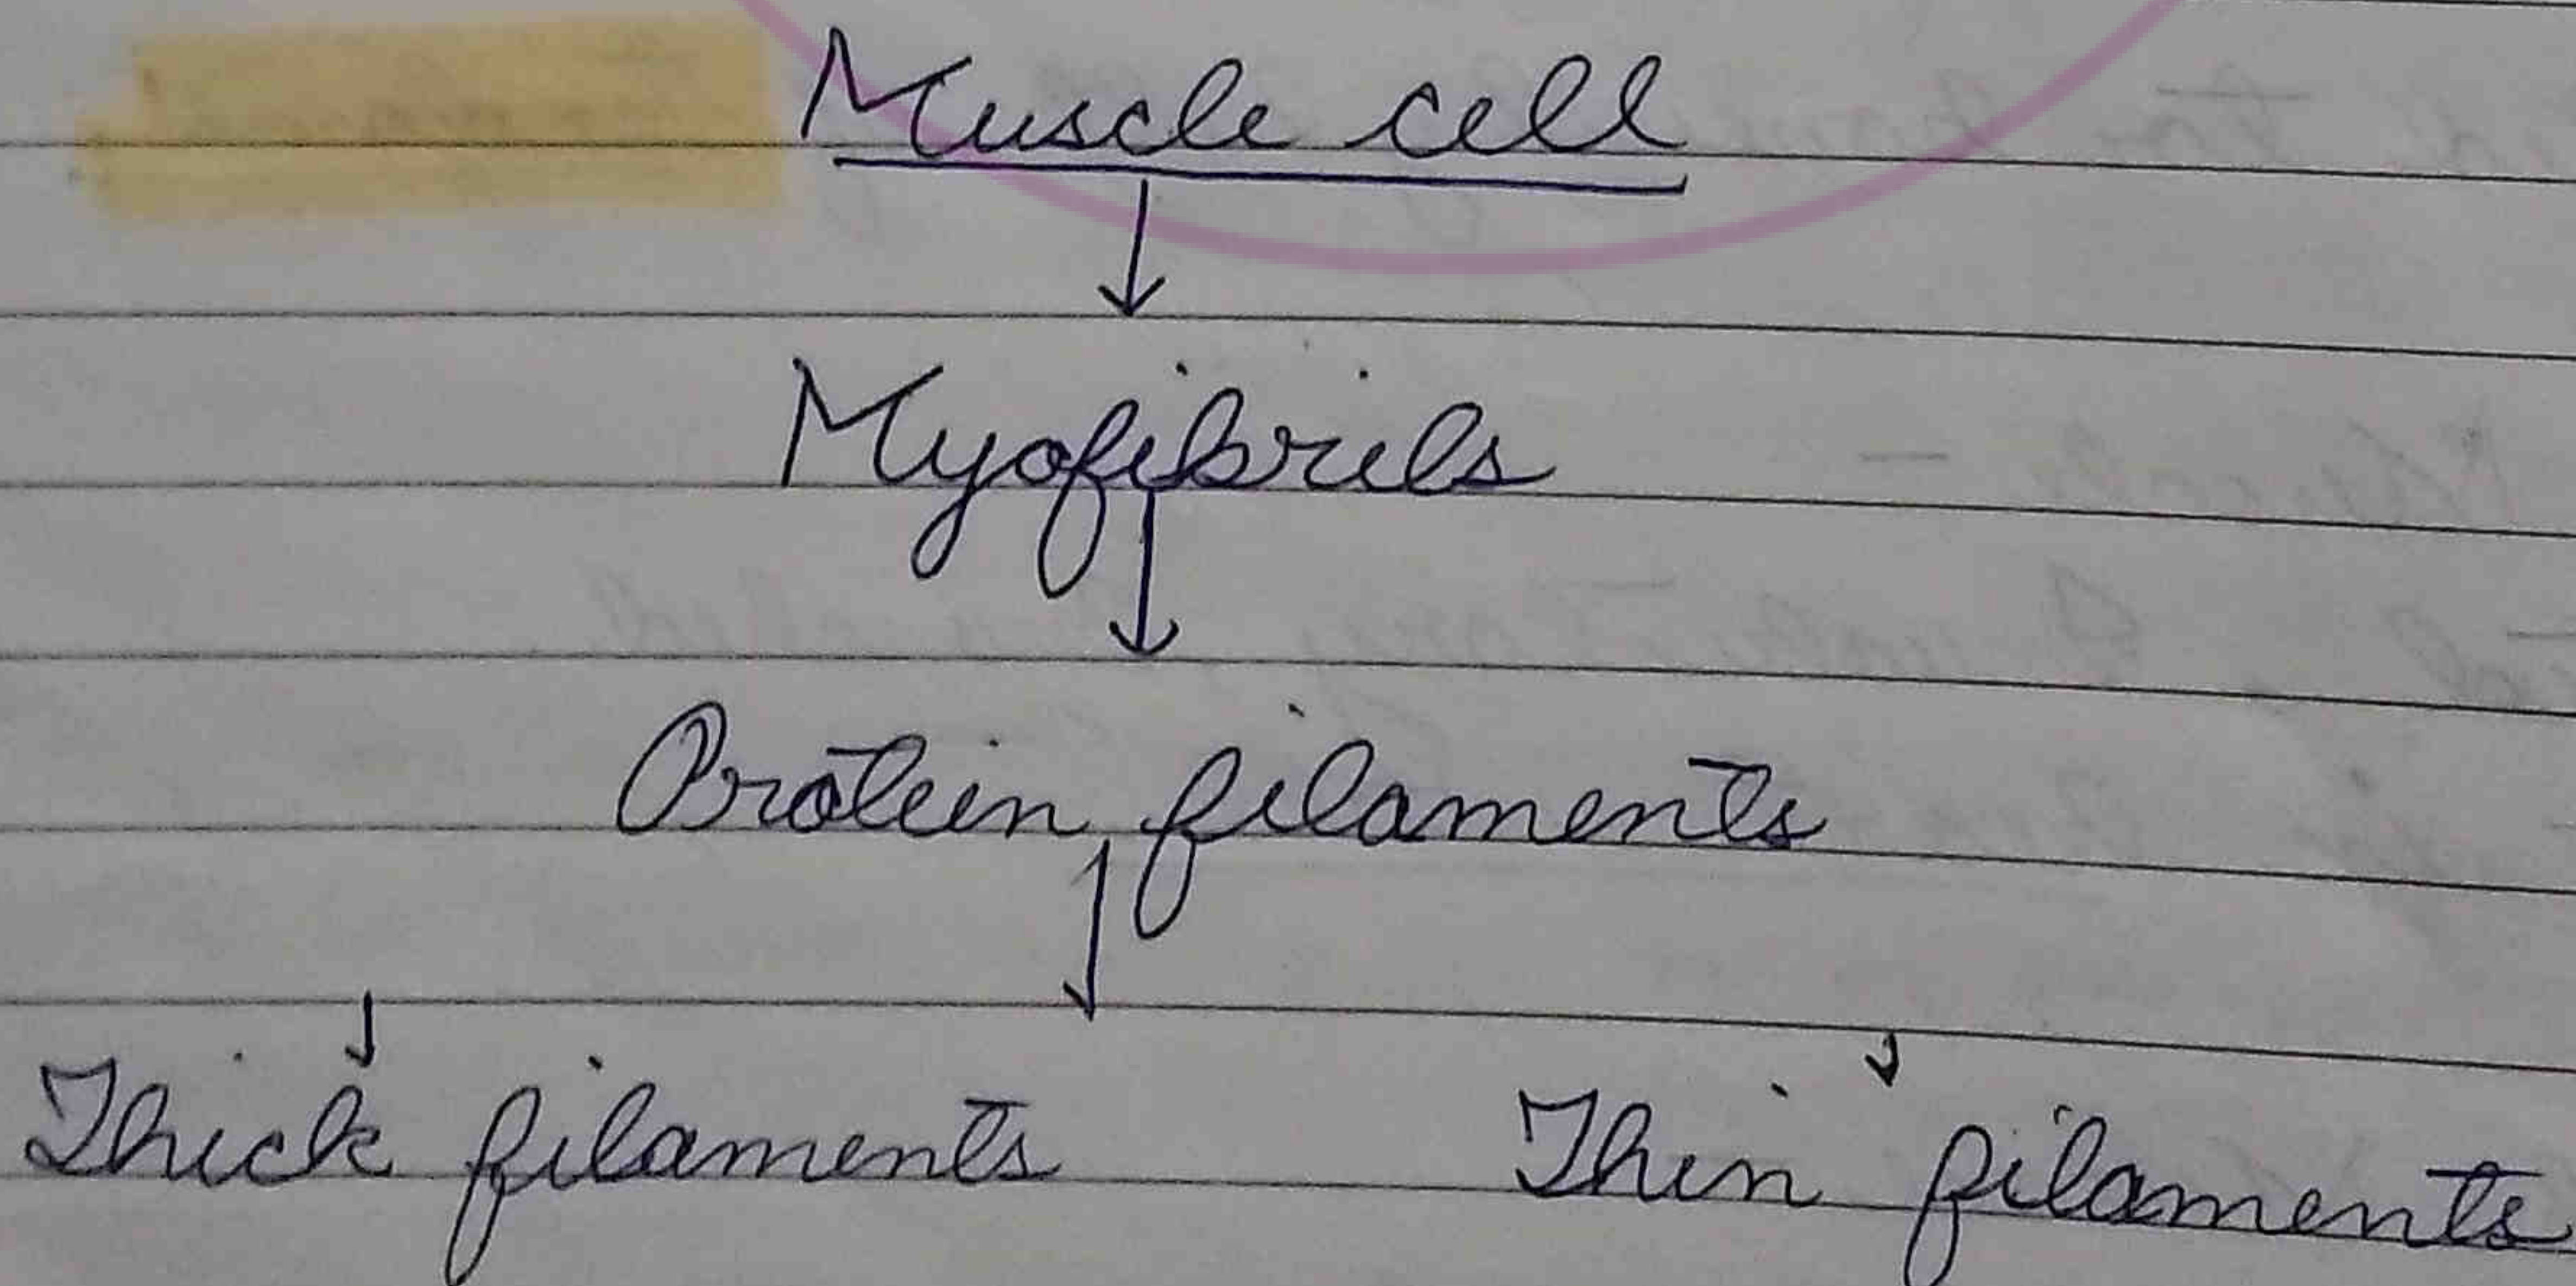 Muscle cell
Myofibrils
Protein filaments
Thick filaments Thin filaments